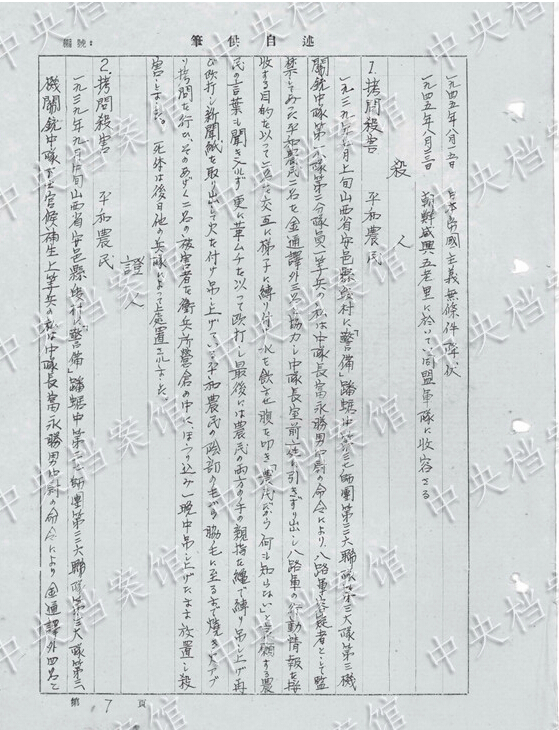 述自供筆
編號:
一九四五年八月一五日 日本帝國主義無條件降伏
一九四五年八月 朝鮮咸興五老里に於いて同盟軍隊に收容さる
殺人
1. 拷問殺害 平和農民
一九三九年 月上旬山西省安邑縣 村に「警備」蟠踞中第三七師團第二二六聯隊第三大隊第三機
關銃中隊第 小隊第二分隊員一等兵の私は中隊長富永勝男中尉の命令により、八路軍 疑者として監
禁してあった平和農民二名を金通譯外三名と協力し中隊長室前に 引きずり出し八路軍の行動情報を
收する目的を以って二名を交互に梯子に縛り 水を飲ませ腹を叩き「農民だから何も知らない」と 願する農
民の言葉も聞き入れず更に革ムチを以って毆打し最後には農民の兩方の手の親指を繩で縛り吊し上げ再
び毆打し新聞紙を取り出して火を付け吊し上げている平和農民の陰部の毛から脇毛に至るまで燒き
り拷問を行い、そのあげく二名の被害者を衛兵所營倉の中にほうり込み一晚中吊し上げたまま放置し殺
害しました。 死体は後日他の兵隊によって處置されました
證人
2. 拷問殺害 平和農民
一九三九年九月 旬山西省安邑縣 村に「警備」蟠踞中第三七師團第二二六聯隊第三大隊第三
機關銃中隊下士官候補生上等兵の私は中隊長富永勝男中尉の命令により金通譯外四名と
第 7 頁
中央档案馆